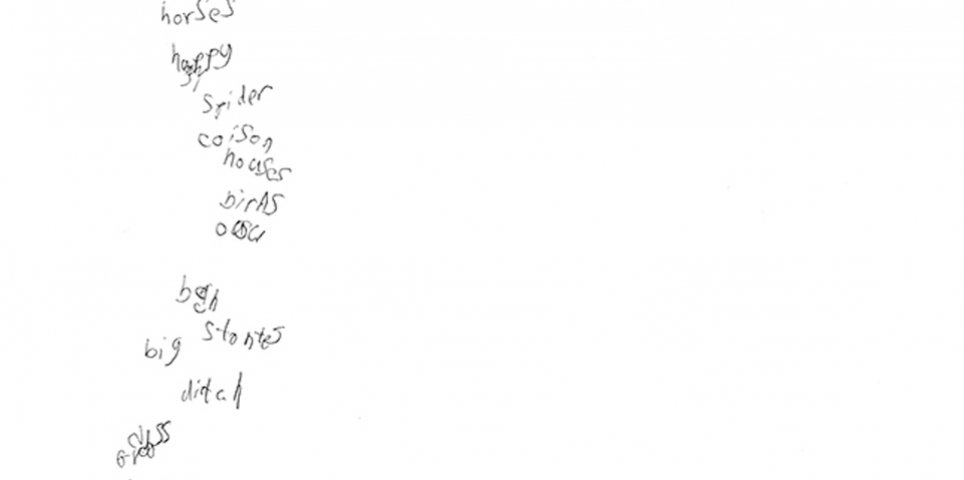 horses
happy
spider
coison
houses
birds
big stontes
ditch